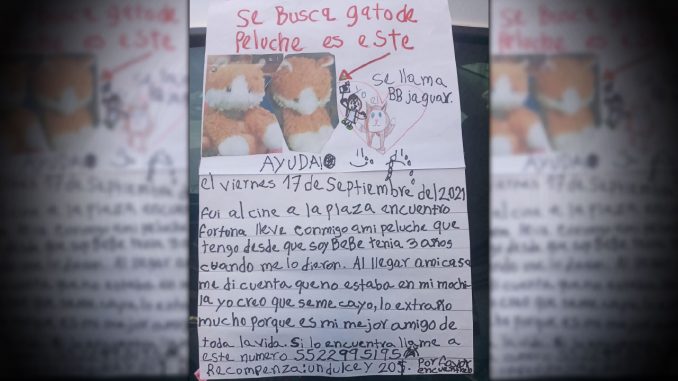 SE BUSCA gato de
Peluche es este
se llama
BB jaguar.
yo el
AYUDA!
el viernes 17 de Septiembre del 2021
fui al cine a la plaza encuentro
fortona lleve conmigo ami peluche que
tengo desde que soy BeBe tenia 3 años
cuando me lo dieron. Al llegar ami casa
me di cuenta que no estaba en mi mochi
la yo creo que seme cayo, lo extraño
mucho porque es mi mejor amigo de
toda la vida. Si lo encuentra llame a
este numero 5522995195
Recompenza: un dulce y 20$. Por favor
encuentrenlo